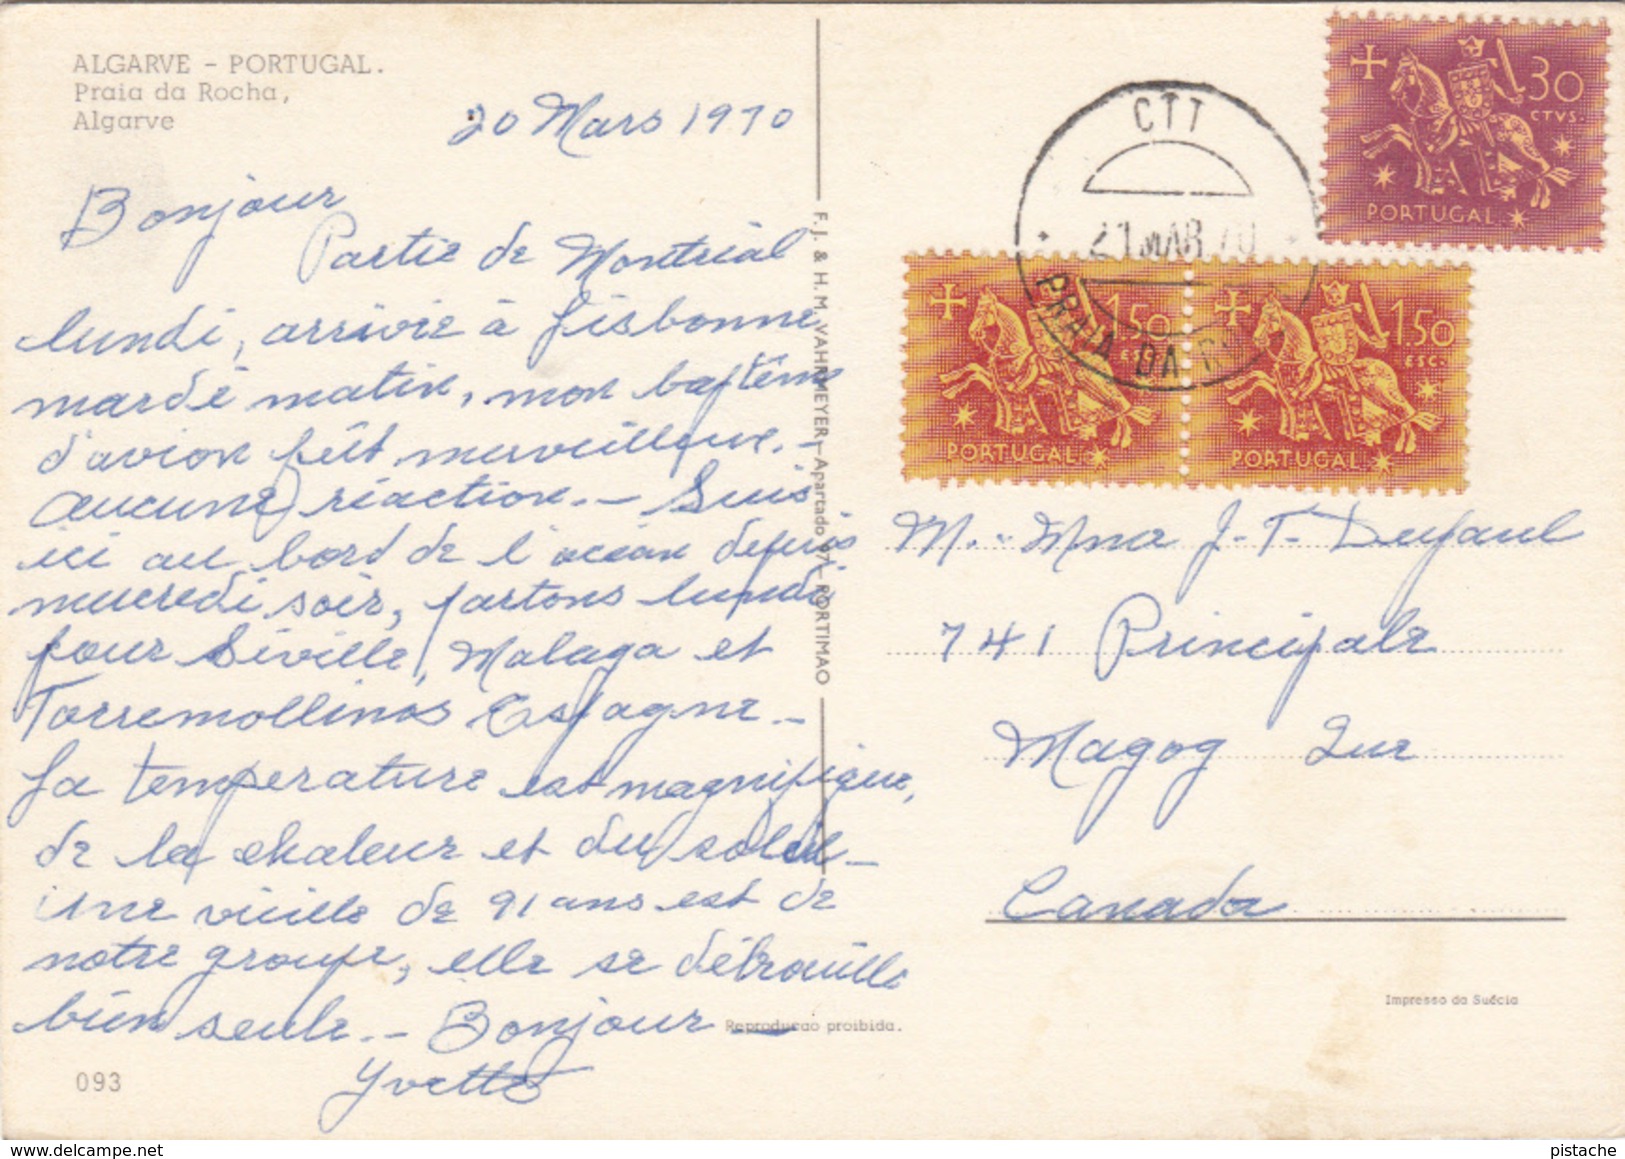 ALGARVE - PORTUGAL.
Praia da Rocha,
Algarve
20 Mars 1970
Bonjour
Partie de Montréal
lundi, arrivée à Lisbonne
mardi matin, mon baptême
d'avion fût merveilleux. –
aucune réaction. – Suis
ici au bord de l'océan depuis
mercredi soir, partons lundi
pour Séville, Malaga et
Torremollinos Espagne –
La température est magnifique,
de la chaleur et du soleil –
une vieille de 91 ans est de
notre groupe, elle se débrouille
bien seule. – Bonjour –
Yvette
093
Reproducao proibida.
F. J. & H. M. VAHRMEYER – Apartado 97 – PORTIMAO
CTT
21 MAR. 70
PRAIA DA
30
CTVS.
PORTUGAL
1.50
ESC.
PORTUGAL
1.50
ESC.
PORTUGAL
M. - Mme J.-T.
741 Principale
Magog Que
Canada
Impresso da Suécia
pistache